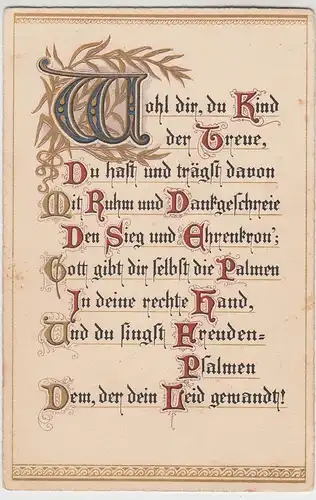 Wohl dir, du Kind
der Treue,
Du hast und trägst davon
Mit Ruhm und Dankgeschreie
Den Sieg und Ehrenkron';
Gott gibt dir selbst die Palmen
In deine rechte Hand,
Und du singst Freuden=
Psalmen
Dem, der dein Leid gewandt!